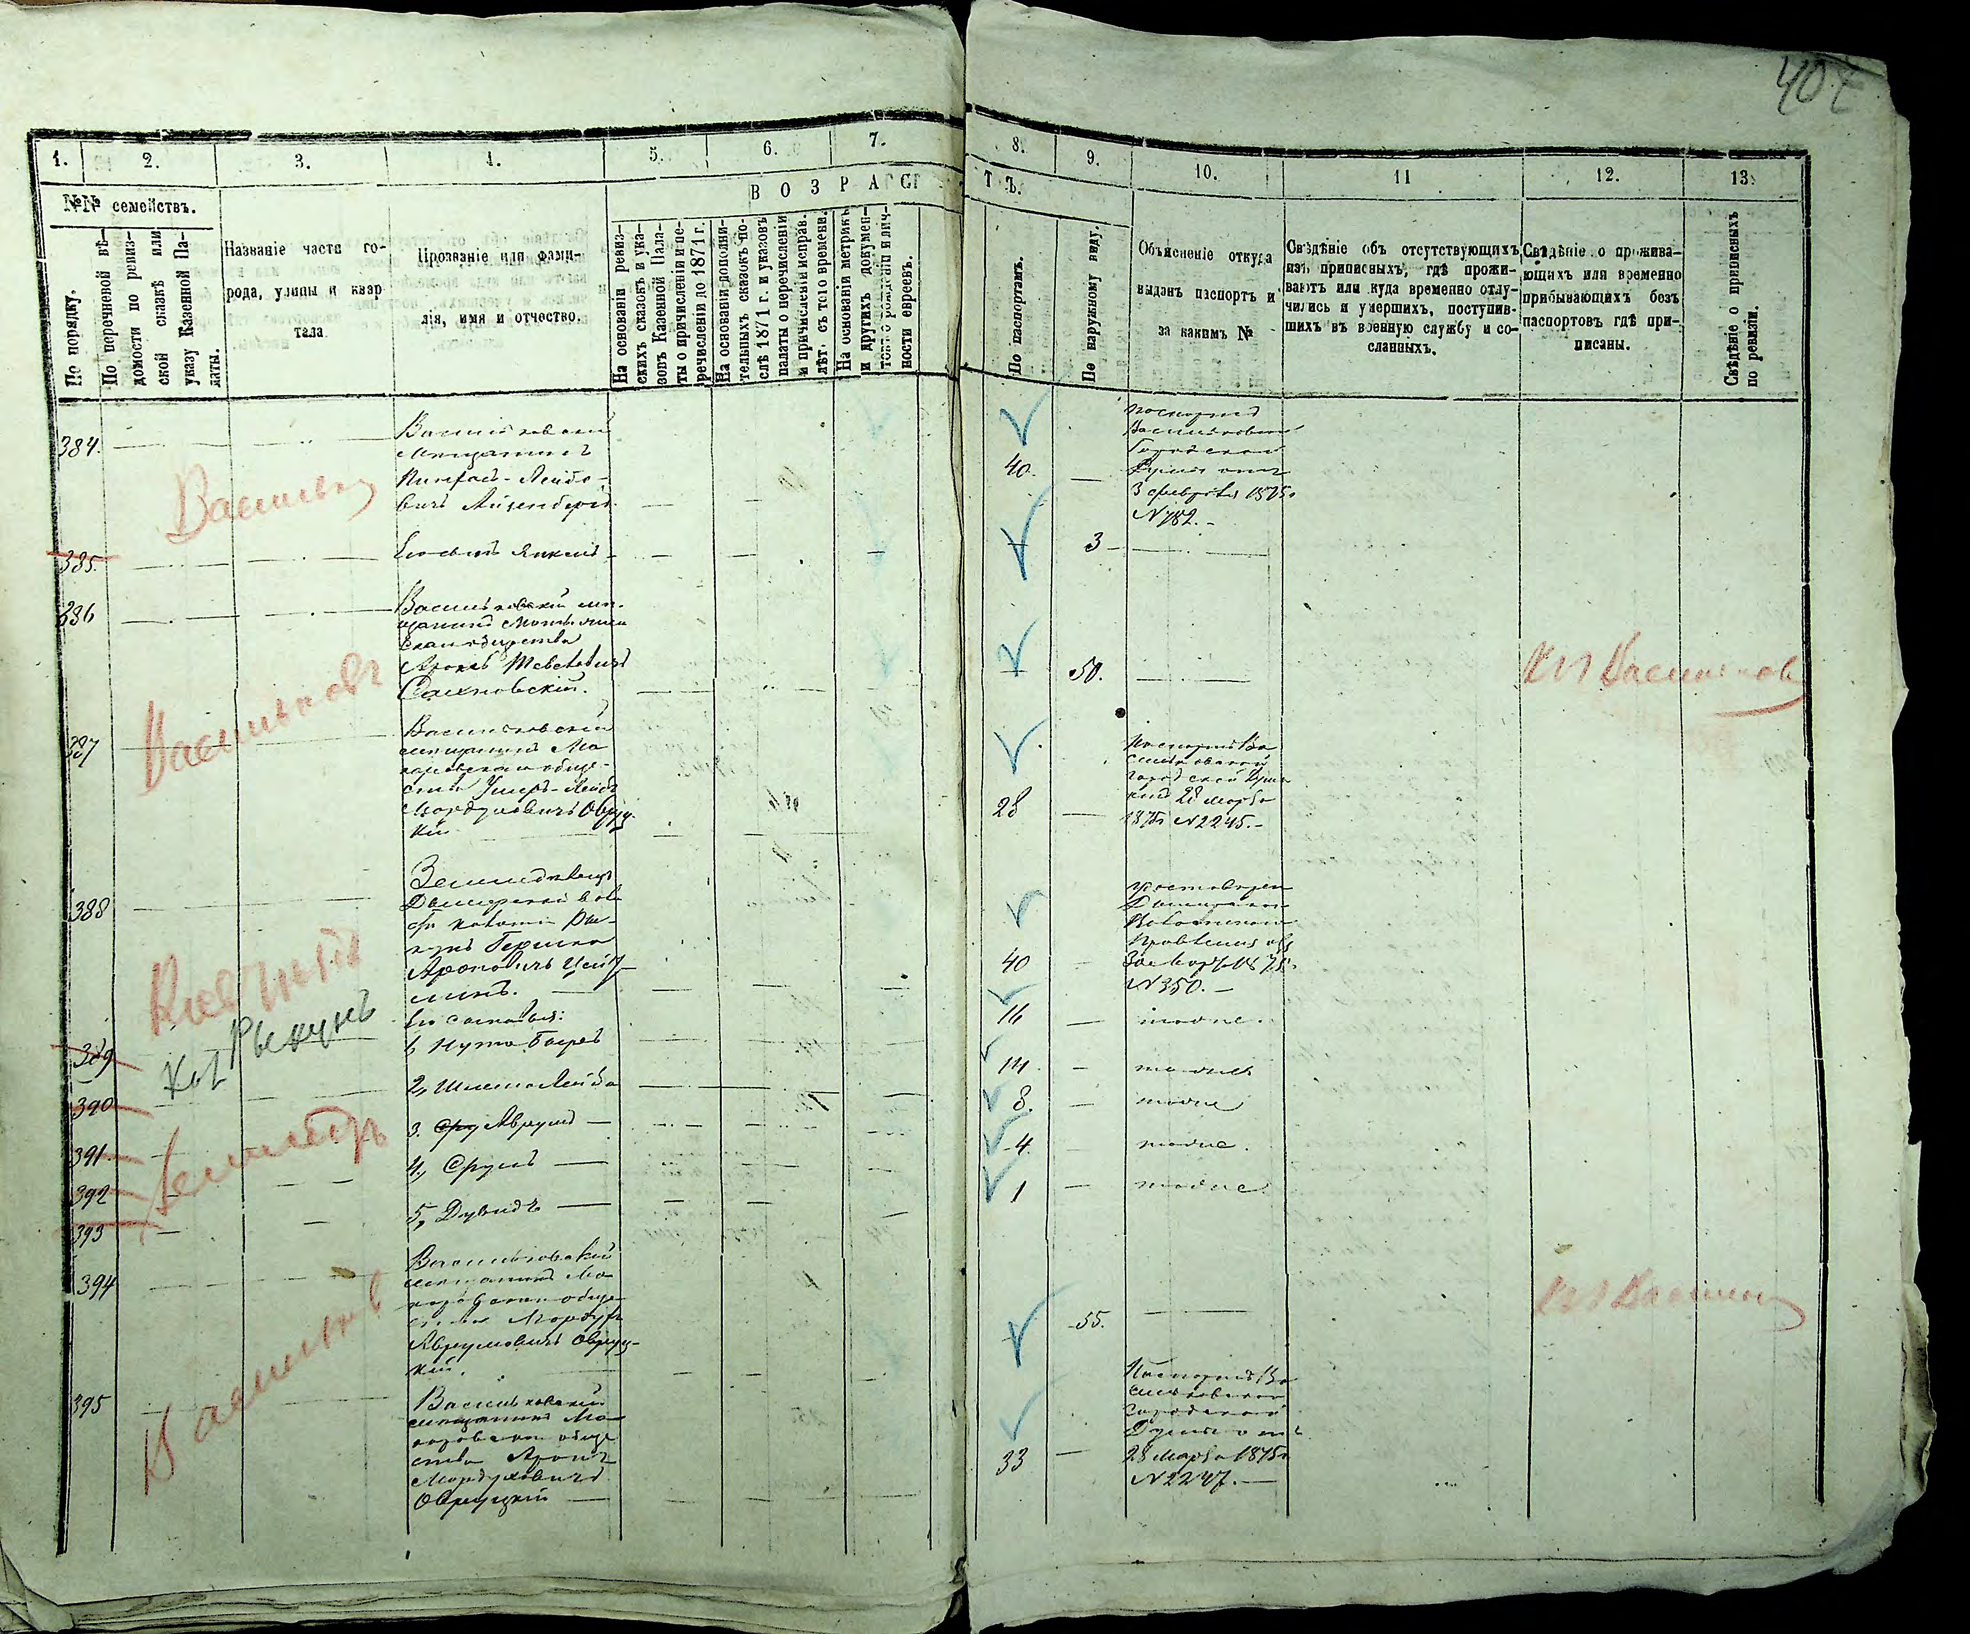 404
1. 2. 3. 4. 5. 6. 7. 8. 9. 10. 11 12. 13.
№№ семействъ.
По порядку.
По перечневой вѣ-
домости по ревиз-
ской сказкѣ или
указу Казенной Па-
латы.
Названіе части го-
рода, улицы и квар
тала.
Прозваніе или фами-
лія, имя и отчество.
ВОЗРАСТЪ.
На основаніи ревиз-
скихъ сказокъ и ука-
зовъ Казенной Пала-
ты о причисленіи и пе-
речисленіи до 1871 г.
На основаніи дополни-
тельныхъ сказокъ по-
слѣ 1871 г. и указовъ
палаты о перечисленіи
и причисленіи исправ.
лѣт. съ того времени.
На основаніи метрикъ
и другихъ докумен-
товъ о рожденіи и лич-
ности евреевъ.
По паспортамъ.
По наружному виду.
Объясненіе откуда
выданъ паспортъ и
за какимъ №
Свѣдѣніе объ отсутствующихъ
изъ приписныхъ, гдѣ прожи-
ваютъ или куда временно отлу-
чились и умершихъ, поступив-
шихъ въ военную службу и со-
сланныхъ.
Свѣдѣніе о прожива-
ющихъ или временно
прибывающихъ безъ
паспортовъ гдѣ при-
писаны.
Свѣдѣніе о приписныхъ
по ревизіи.
384.
Васильковскій
мѣщанинъ
Пинхасъ-Лейбо-
вичъ Айзенбергъ.
40.
Паспортъ
Васильковской
Городской
Думы отъ
3 февраля 1875г
№ 782.-
385.
3
386
Васильковскій мѣ-
щанинъ
общества
Аронъ Тевелевичъ
Сахновскій.
50.
Васильковъ
387
Васильковскій
мѣщанинъ Ма
каровскаго обще-
ства Умеръ-Лейбъ
Мордуховичъ Овруц-
кій
28
Паспортъ Ва
сильковской
городской Думы
28 Марта
1875г № 2245.-
388
Земледѣлецъ
колоніи Ры-
кунь Гершко
Ароновичъ
40
№ 350.-
Его сыновья:
389
1,
16
тоже.
390
2, Шлема Лейба
14.
тоже
391
3. Аврумъ
8.
тоже
392
4, Сруль
4.
тоже.
393
5, Дувидъ
1
тоже.
Кол Рыкунь
394
Васильковскій
мѣщанинъ Ма
каровскаго обще
ства Мордухъ
Аврумовичъ Овруц-
кій.
55.
Васильковъ
395
Васильковскій
мѣщанинъ Ма
каровскаго обще
ства Аронъ
Мордуховичъ
Овруцкій
33
Паспортъ Ва
сильковской
Городской
Думы отъ
28 Марта 1875г
№ 2247.-